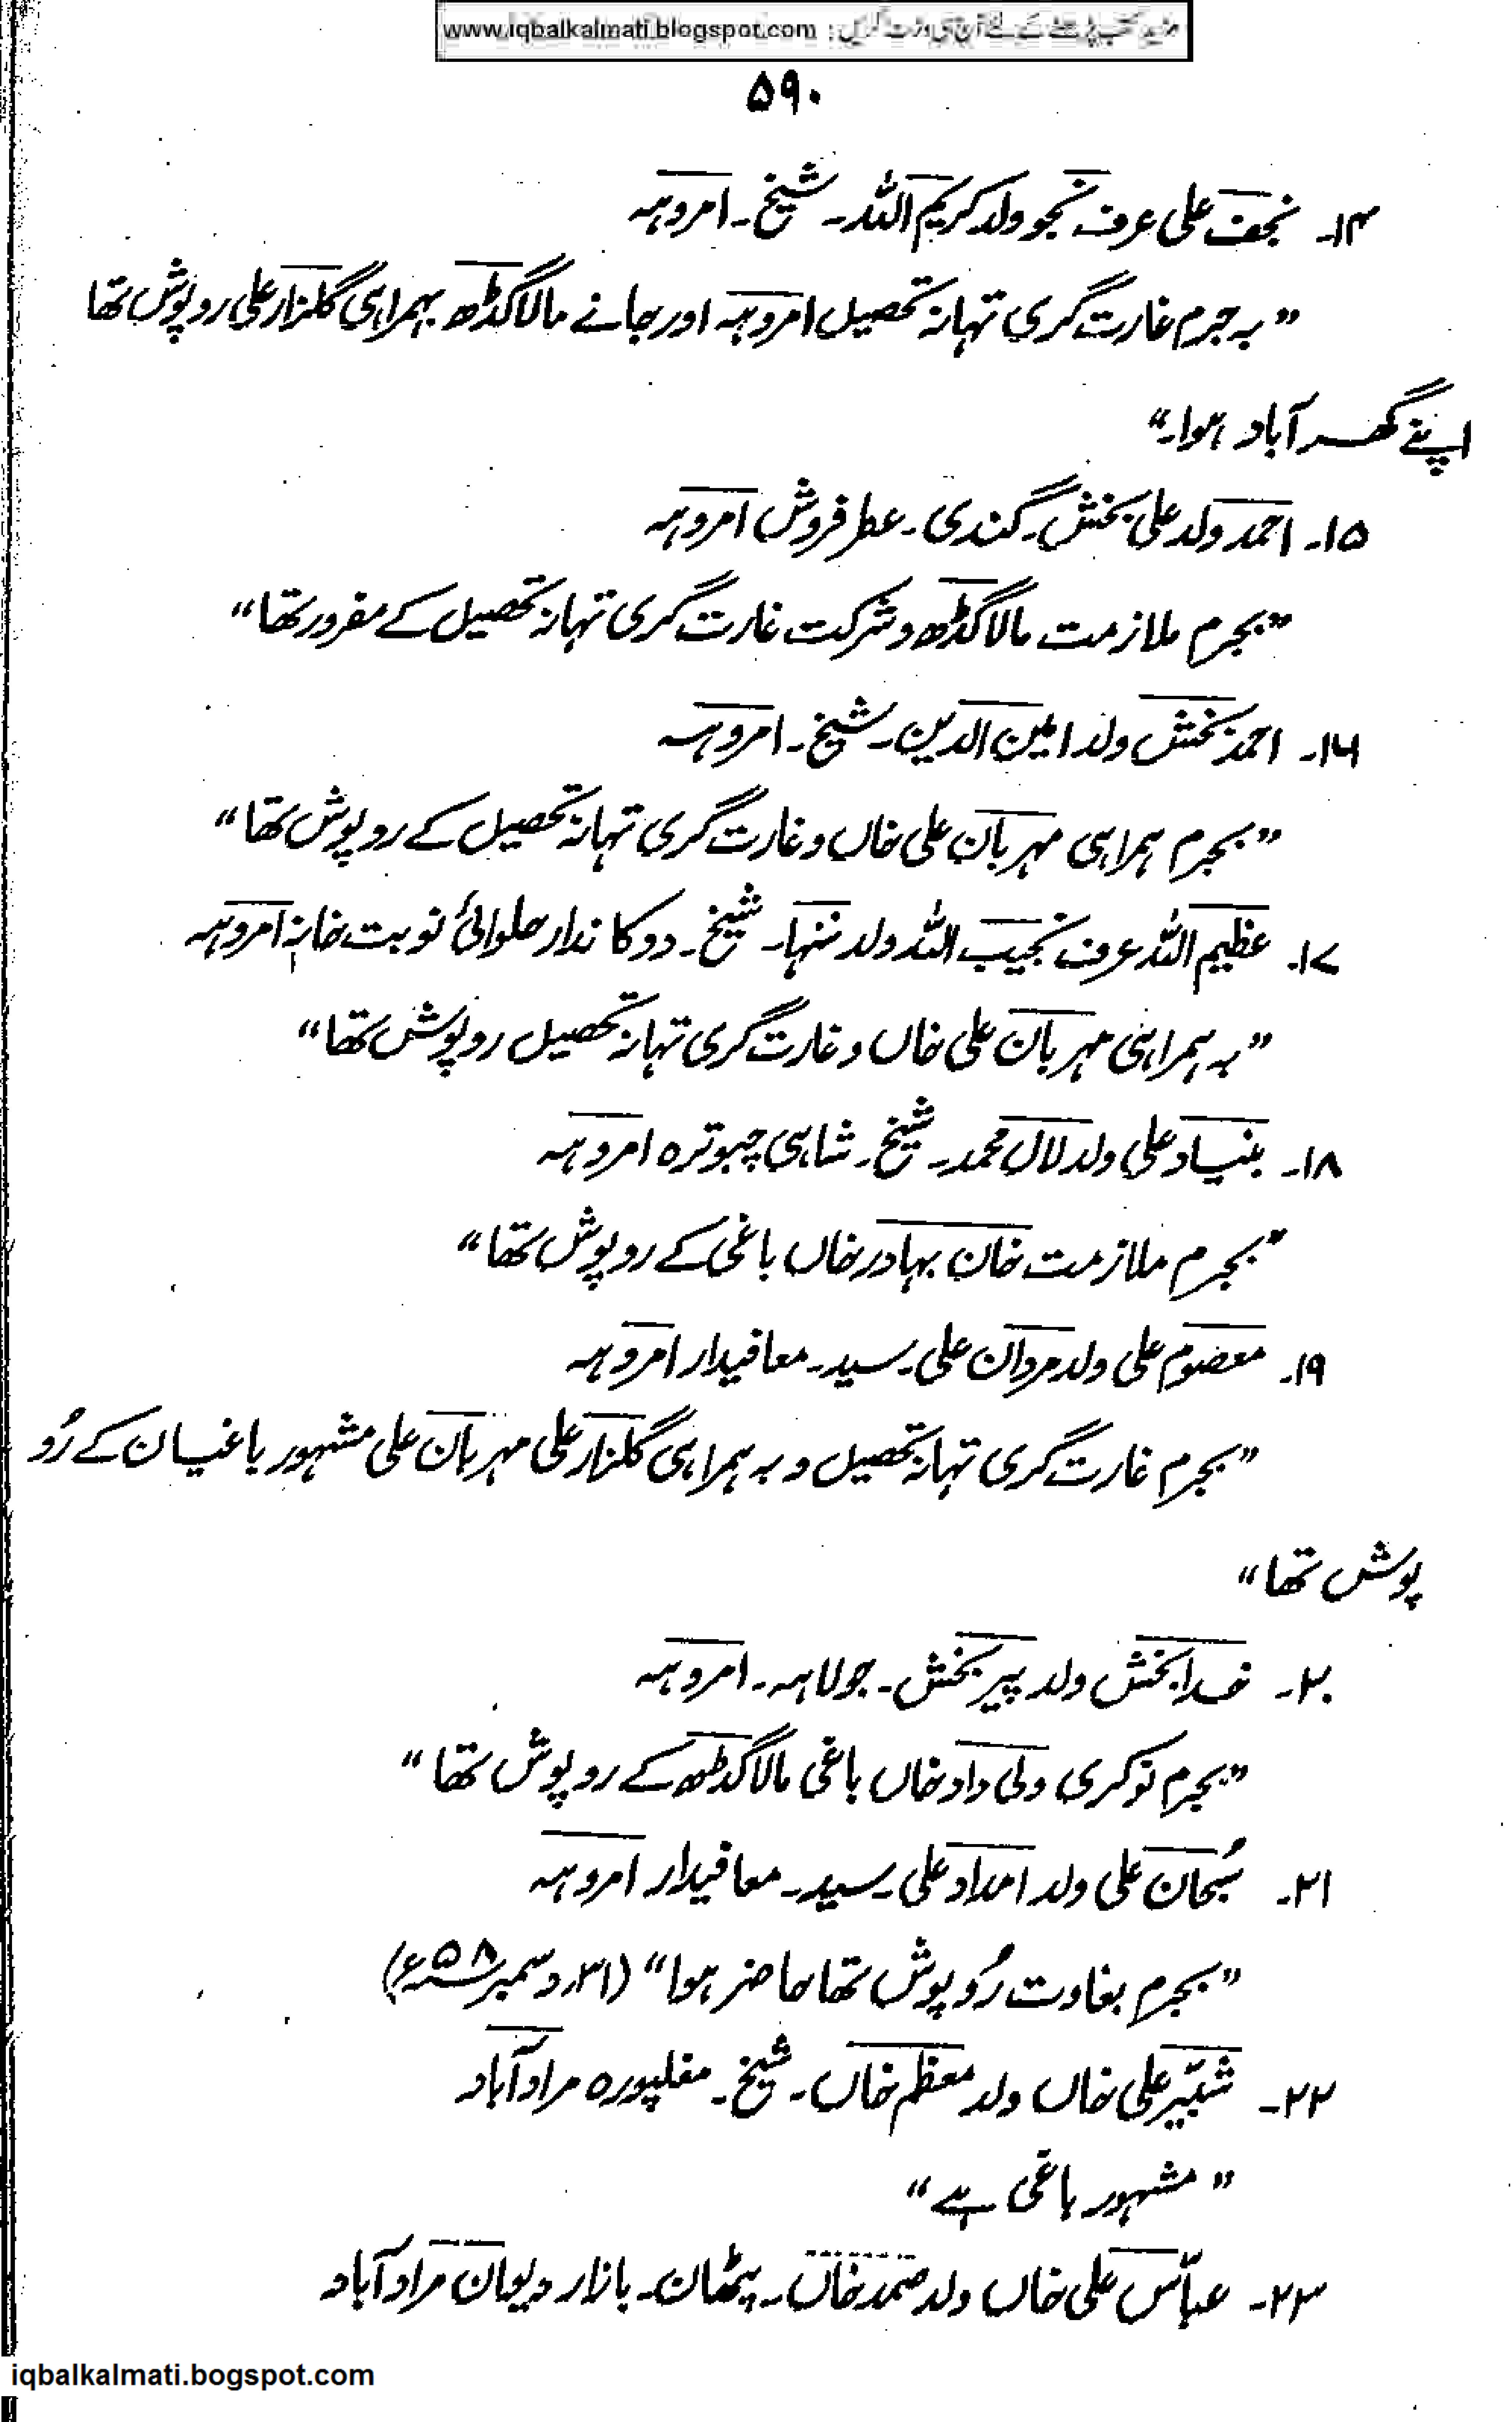 مزید کتب پڑھنے کے لئے آج ہی وزٹ کریں : www.iqbalkalmati.blogspot.com
۵۹۰
۱۴۔ نجف علی عرف نجو ولد کریم اللہ۔ شیخ۔ امروہہ
”بہ جرم غارت گری تہانہ تحصیل امروہہ اور جانے مالاگڈھ بہمراہی گلزار علی روپوش تھا
اپنے گھر آباد ہوا۔“
۱۵۔ احمد ولد علی بخش۔ گندی۔ عطر فروش امروہہ
”بجرم ملازمت مالاگڈھ و شرکت غارت گری تہانہ تحصیل کے مفرور تھا“
۱۶۔ احمد بخش ولد امین الدین۔ شیخ۔ امروہہ
”بجرم ہمراہی مہربان علی خاں و غارت گری تہانہ تحصیل کے روپوش تھا“
۱۷۔ عظیم اللہ عرف نجیب اللہ ولد ننہا۔ شیخ۔ دوکاندار حلوائی نوبت خانہ امروہہ
”بہ ہمراہی مہربان علی خاں و غارت گری تہانہ تحصیل روپوش تھا“
۱۸۔ بنیاد علی ولد لال محمد۔ شیخ۔ شاہی چبوترہ امروہہ
”بجرم ملازمت خان بہادر خاں باغی کے روپوش تھا“
۱۹۔ معصوم علی ولد مردان علی۔ سید۔ معافیدار امروہہ
”بجرم غارت گری تہانہ تحصیل و بہ ہمراہی گلزار علی مہربان علی مشہور باغیان کے رُو
پوش تھا“
۲۰۔ خدا بخش ولد پیر بخش۔ جولاہہ۔ امروہہ
”بجرم نوکری ولی داد خاں باغی مالاگڈھ کے روپوش تھا“
۲۱۔ سُبحان علی ولد امداد علی۔ سید۔ معافیدار امروہہ
”بجرم بغاوت رُوپوش تھا حاضر ہوا“ (۳۱؍ دسمبر ۵۸ء)
۲۲۔ شبّیر علی خاں ولد معظم خاں۔ شیخ۔ مغلپورہ مرادآباد
”مشہور باغی ہے“
۲۳۔ عبّاس علی خاں ولد صمد خاں۔ پٹھان۔ بازار دیوان مرادآباد
iqbalkalmati.bogspot.com